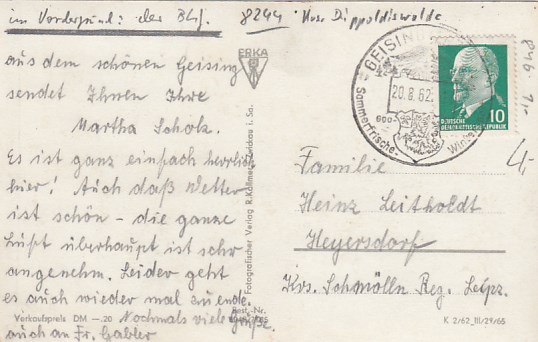 im Vordergrund: der Bhf.
8244 Krs. Dippoldiswalde
ERKA
aus dem schönen Geising
sendet Ihnen Ihre
Martha Scholz.
Es ist ganz einfach herrlich
hier! Auch daß Wetter
ist schön - die ganze
Luft überhaupt ist sehr
angenehm. Leider geht
es auch wieder mal zu ende.
Nochmals viele Grüße
auch an Fr. Gabler
Verkaufspreis DM —.20
Best.-Nr.
Fotografischer Verlag R. i. Sa.
GEISING
20.8.62.
600
Sommerfrische
DEUTSCHE
DEMOKRATISCHE REPUBLIK
10
4,-
Familie
Heinz Leitholdt
Heyersdorf
Krs. Schmölln Reg. Leipz.
K 2/62 III/29/65